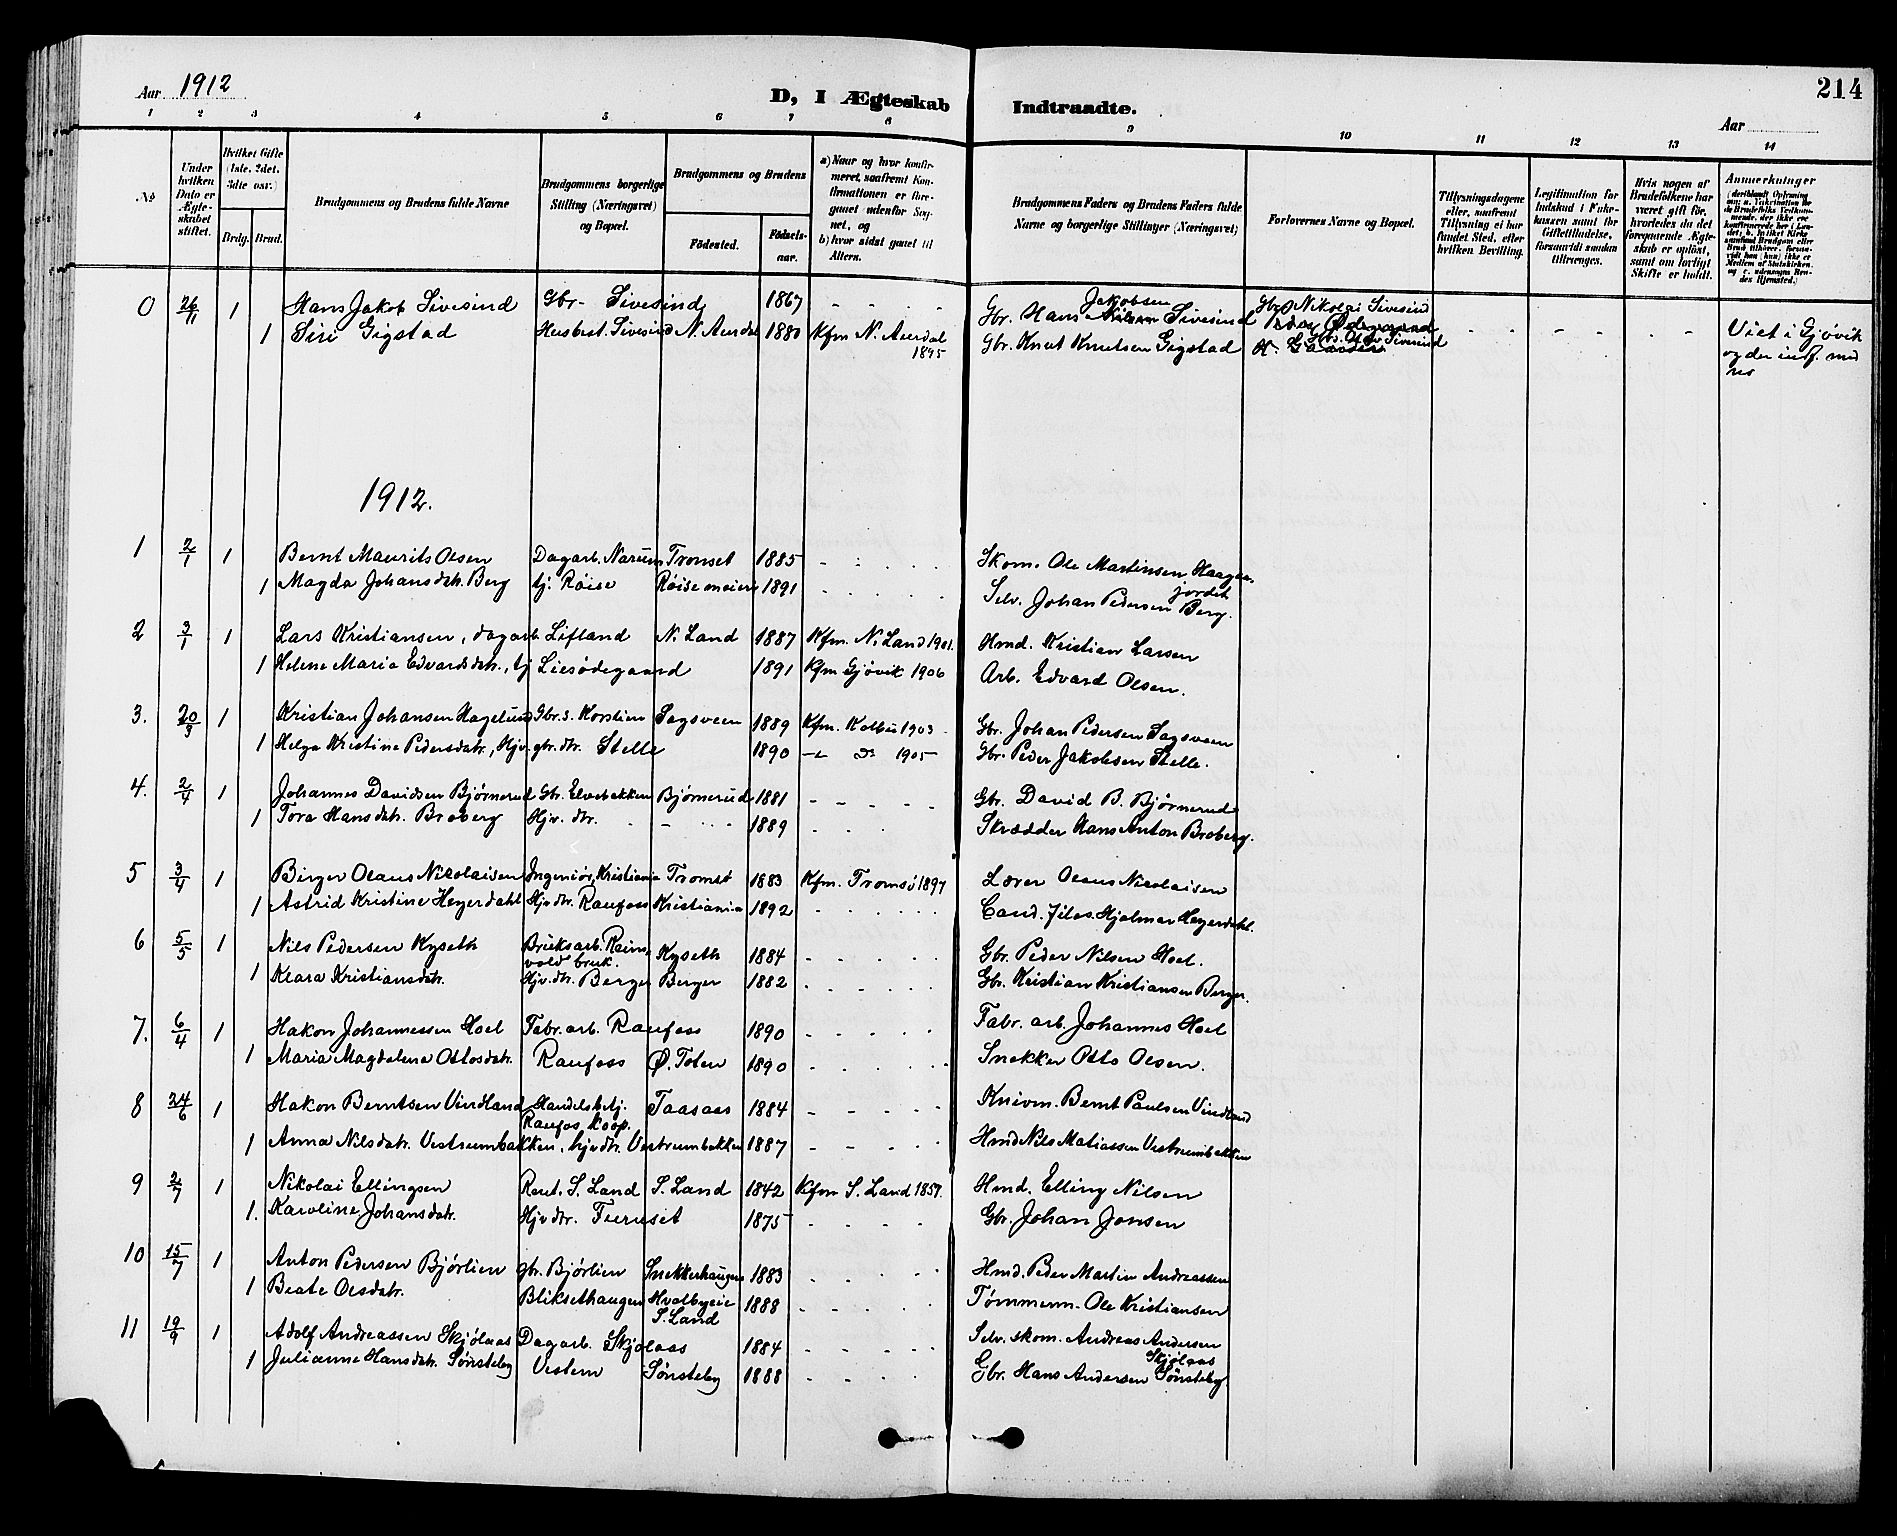 Aar 1912
D, I Ægteskab Indtraadte.
214
Aar
1 2 3 4 5 6 7 8 9 10 11 12 13 14
No
Under hvilken Dato er Ægteskabet stiftet.
Hvilket Gifte (1ste, 2det, 3dte osv.)
Brdg. Brud.
Brudgommens og Brudens fulde Navne
Brudgommens borgerlige Stilling (Næringsvei) og Bopæl.
Brudgommens og Brudens
Födested.
Födselsaar.
a) Naar og hvor konfirmeret, saafremt Konfirmationen er foregaaet udenfor Sognet, og
b) hvor sidst gaaet til Alters.
Brudgommens Faders og Brudens Faders fulde Navne og borgerlige Stillinger (Næringsvei)
Forlovernes Navne og Bopæl.
Tillysningsdagene eller, saafremt Tillysning ei har fundet Sted, efter hvilken Bevilling.
Legitimation for Indskud i Enkekassen samt for Giftetilladelse, forsaavidt saadan tiltrænges.
Hvis nogen af Brudefolkene har været gift før, hvorledes da det foregaaende Ægteskab er opløst, samt om lovligt Skifte er holdt.
Anmærkninger
0 26/11 1 Hans Jakob Sivesind Gbr- Sivesind 1867 - - - - Gbr. Hans Jakobsen Sivesind Gbr Nikolai Sivesind
1 Siri Gigstad Husbest. Sivesind N. Aurdal 1880 Kfm N. Aurdal 1895 Gbr. Knut Knutsen Gigstad Viet i Gjøvik og der indf. med no
1912.
1 2/1 1 Bernt Maurits Olsen Dagarb. Narum Tromset 1885 - - - - Skom. Ole Martinsen Haagaajordet
1 Magda Johansdtr. Berg tj. Röise Röise meieri 1891 . . . . Selv. Johan Pedersen Berg.
2 3/1 1 Lars Kristiansen, dagarb. Lifland N. Land 1887 Kfm. N. Land 1901. Hmd. Kristian Larsen
1 Helene Maria Edvardsdtr., tj Liesødegaard 1891 Kfm Gjøvik 1906 Arb. Edvard Olsen.
3. 20/3 1 Kristian Johansen Hagelund Gbr.s. Korslien Sagsveen 1889 Kfm. Kolbu 1903 Gbr. Johan Pedersen Sagsveen
1 Helga Kristine Pedersdatr., Hjv. gbr. dtr. Stelle 1890 1905 Gbr. Peder Jakobsen Stelle.
4. 2/4 1 Johannes Davidsen Bjørnerud Gbr. Elvebakken Bjørnerud 1881 - - - - Gbr. David B. Bjørnerud
1 Tora Hansdtr. Broberg Hjv. dtr. - - 1889 - - - Skrædder Hans Anton Broberg.
5 3/4 1 Birger Olaus Nikolaisen Ingeniör, Kristiania Tromsö 1883 Kfm. Tromsö 1897 Lærer Olaus Nicolaisen
1 Astrid Kristine Heyerdahl Hjv. dtr. Raufoss Kristiania 1892 . . . . Cand. filos. Hjalmar Heyerdahl.
6 5/5 1 Nils Pedersen Kyseth Bruksarb. Reinsvold bruk. Kyseth 1884 - - - - Gbr. Peder Nilsen Hoel.
1 Klara Kristiansdtr. Hjv. dtr. Berger Berger 1882 . . . . Gbr. Kristian Kristiansen Berger.
7. 6/4 1 Hakon Johannessen Hoel Fabr. arb. Raufoss 1890 - - - - Fabr. arb. Johannes Hoel
1 Maria Magdalena Ottosdatr. Raufoss Ø. Toten 1890 - - - - Snekker Otto Olsen.
8 24/6 1 Hakon Berntsen Vindland Handelsbetj. Raufos Koop. Taasaas 1884 - - - - Knivm. Bernt Paulsen Vindland
1 Anna Nilsdatr. Vestrumbakken, hjv. dtr. Vestrumbakken 1887 - - - - Hmd Nils Matiassen Vestrumbakken
9 2/7 1 Nikolai Ellingsen S. Land S. Land 1842 Kfm S. Land 1857. Hmd. Elling Nilsen
1. Karoline Johansdatr. Hjv dtr. Furuset 1875 - - - - Gbr. Johan Jonsen
10 15/7 1 Anton Pedersen Bjørlien gbr. Bjørlien Snekkerhaugen 1883 . . . . Hmd. Peder Martin Andreassen
1 Beate Olsdatr. Bliksethaugen Hvalbyeie S. Land 1888 - - - - Tømmerm. Ole Kristiansen
11 19/9 1 Adolf Andreassen Skjølaas Dagarb. Skjølaas 1884 - - - - Selv. skom. Andreas Andersen Skjølaas
1 Julianne Hansdatr. Sønsteby Vestern Sønsteby 1888 - - - - Gbr. Hans Andersen Sønsteby.